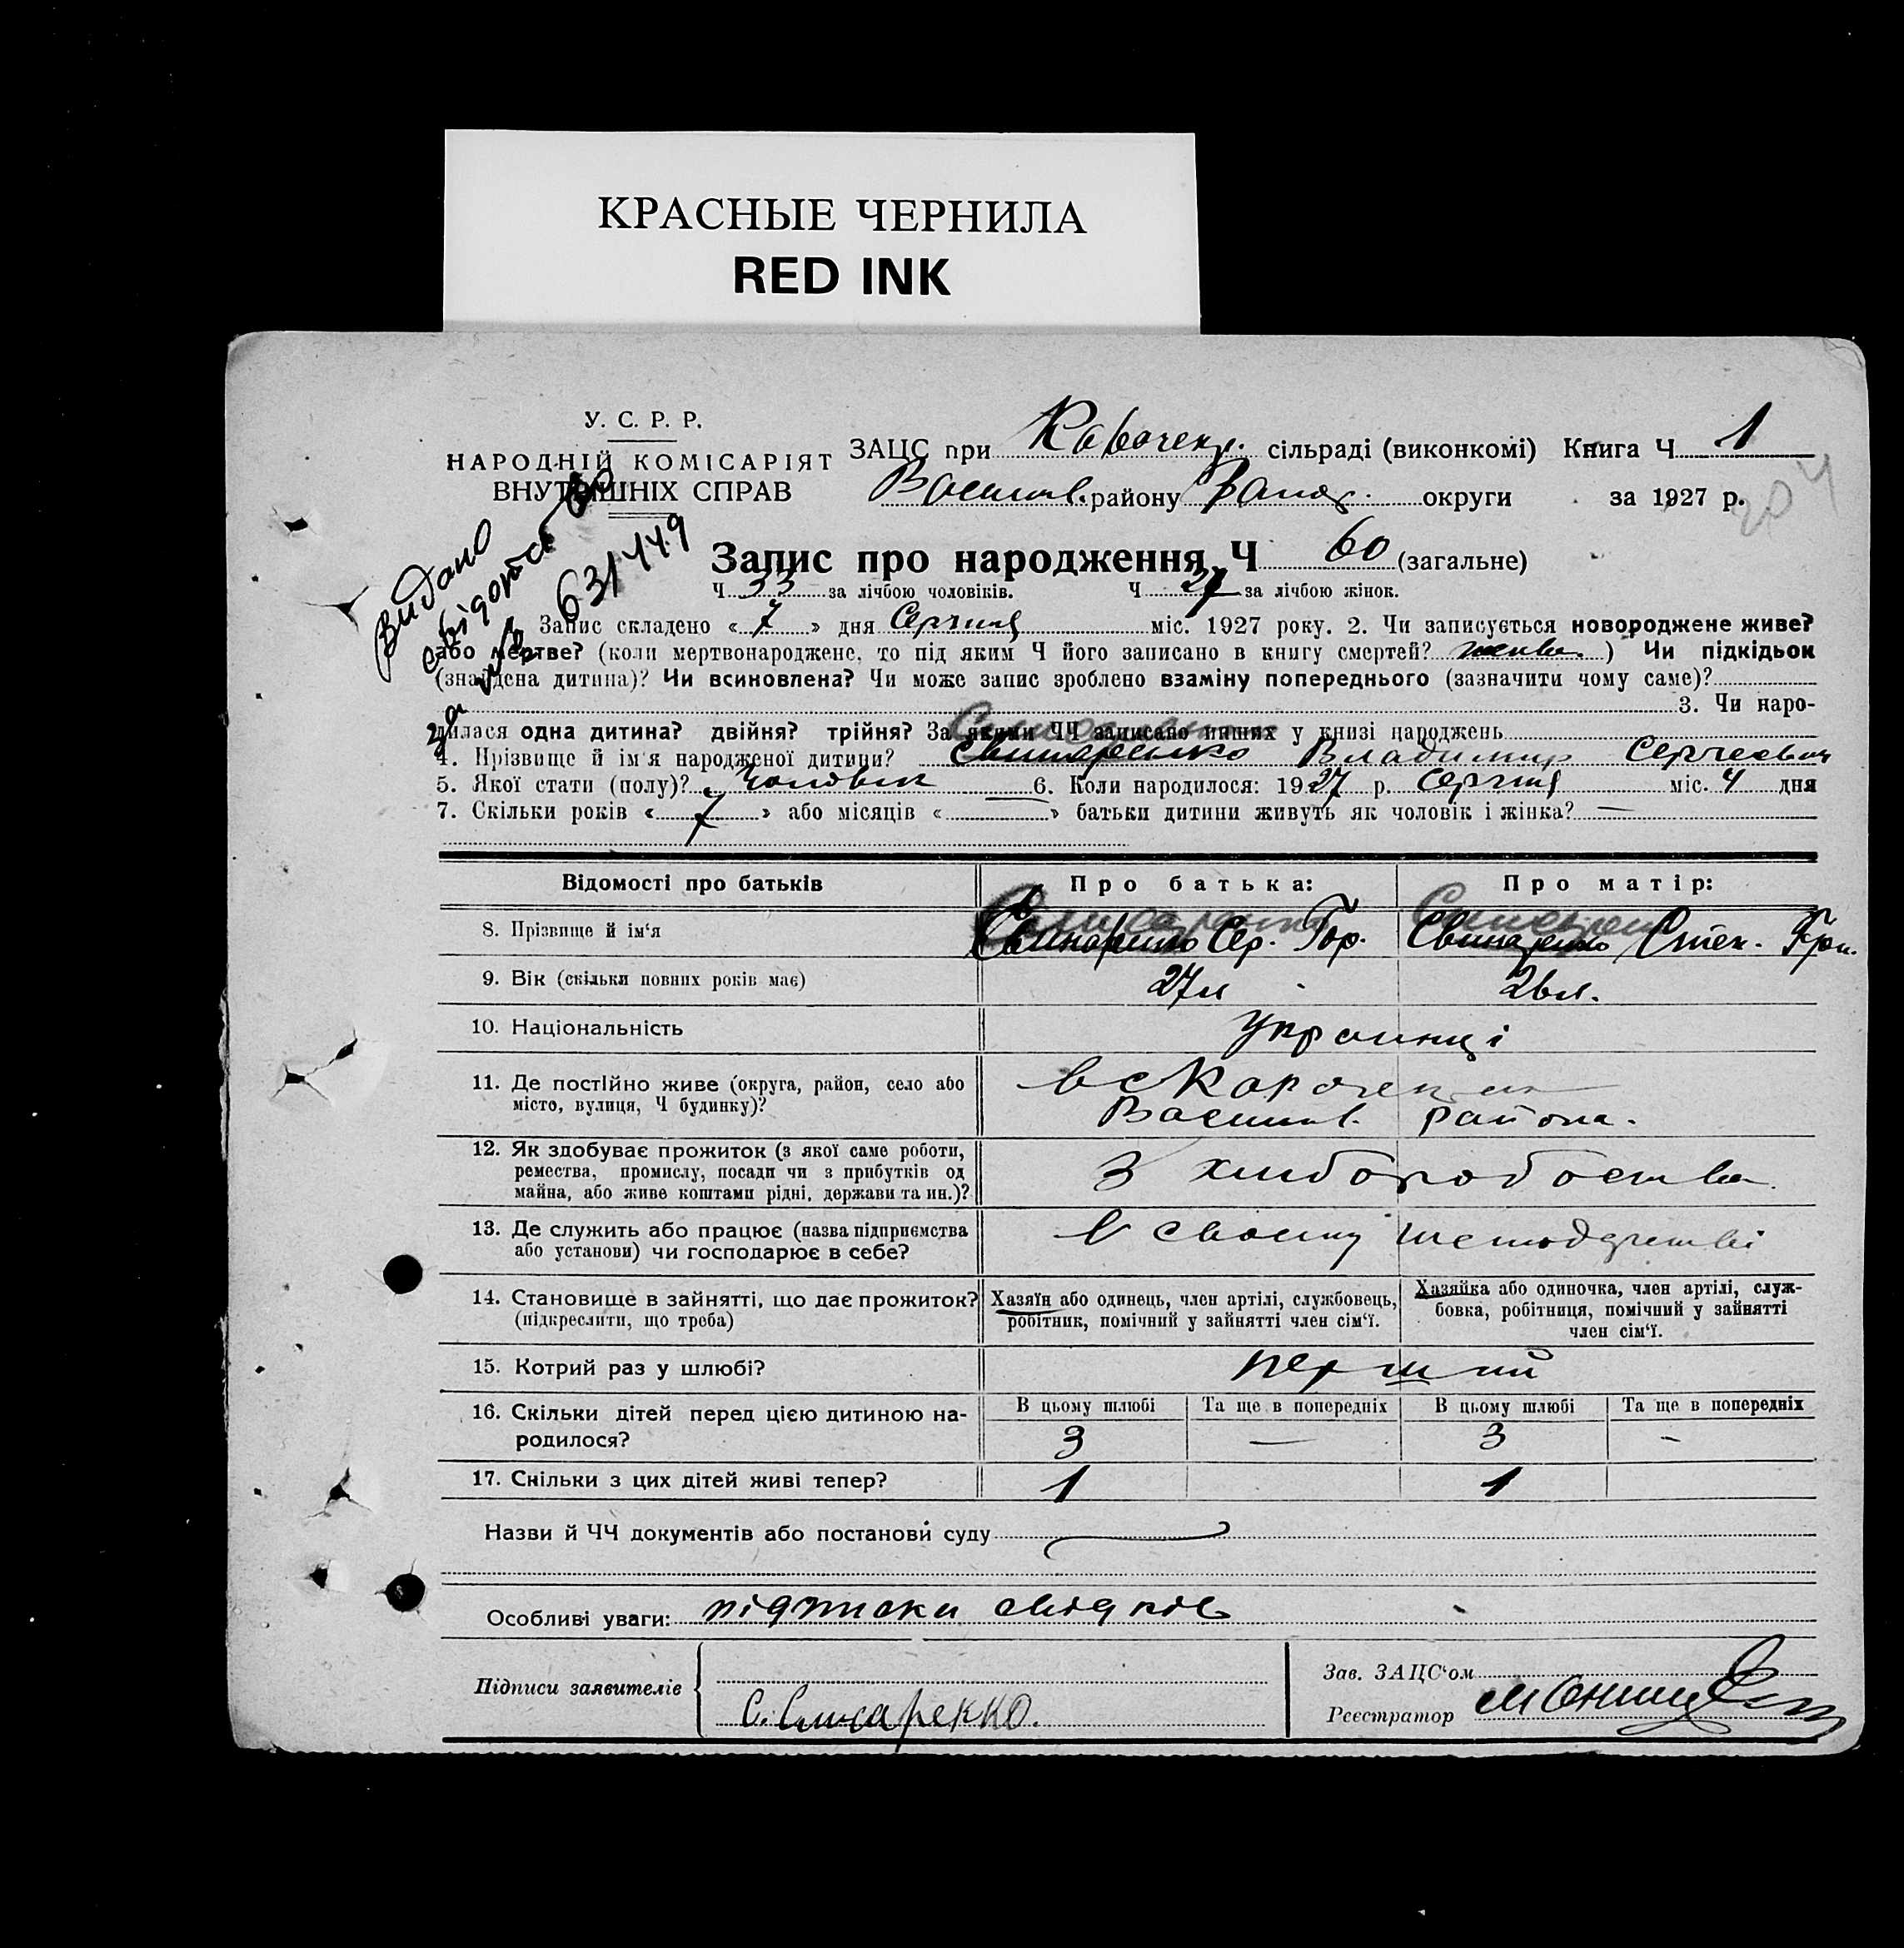 КРАСНЫЕ ЧЕРНИЛА
RED INK
У. С. Р. Р.
НАРОДНІЙ КОМІСАРІЯТ
ВНУТРІШНІХ СПРАВ
ЗАЦС при сільраді (виконкомі) Книга Ч 1
Василів. району Запор. округи за 1927 р.
204
Видано свідоцтво
за 631449
Запис про народження Ч 60 (загальне)
Ч 33 за лічбою чоловіків. Ч 27 за лічбою жінок.
Запис складено « 7 » дня Серпня міс. 1927 року. 2. Чи записується новороджене живе?
або мертве? (коли мертвонароджене, то під яким Ч його записано в книгу смертей? живе ) Чи підкідьок
(знайдена дитина)? Чи всиновлена? Чи може запис зроблено взаміну попереднього (зазначити чому саме)?
3. Чи наро-
дилася одна дитина? двійня? трійня? За якими ЧЧ записано инших у книзі народжень
4. Прізвище й ім'я народженої дитини? Свинаренко Владимир Сергеевич
5. Якої стати (полу)? Чоловік 6. Коли народилося: 1927 р. Серпня міс. 4 дня
7. Скільки років « 7 » або місяців « — » батьки дитини живуть як чоловік і жінка? —
Відомості про батьків Про батька: Про матір:
8. Прізвище й ім'я Свинаренко Сер. Гор. Свинаренко Степ. Гри.
9. Вік (скільки повних років має) 27 л 26 л.
10. Національність Українці
11. Де постійно живе (округа, район, село або
місто, вулиця, Ч будинку)?
Василів. района.
12. Як здобуває прожиток (з якої саме роботи,
ремества, промислу, посади чи з прибутків од
майна, або живе коштами рідні, держави та ин.)?
З хліборобства
13. Де служить або працює (назва підприємства
або установи) чи господарює в себе?
В своему
14. Становище в зайнятті, що дає прожиток?
(підкреслити, що треба)
Хазяїн або одинець, член артілі, службовець,
робітник, помічний у зайнятті член сім'ї.
Хазяйка або одиночка, член артілі, служ-
бовка, робітниця, помічний у зайнятті
член сім'ї.
15. Котрий раз у шлюбі? перший
16. Скільки дітей перед цією дитиною на-
родилося?
В цьому шлюбі Та ще в попередніх В цьому шлюбі Та ще в попередніх
3 — 3 -
17. Скільки з цих дітей живі тепер? 1 1
Назви й ЧЧ документів або постанови суду
Особливі уваги: підписки свідків
Підписи заявителів
С. Свинаренко.
Зав. ЗАЦС'ом
Реєстратор